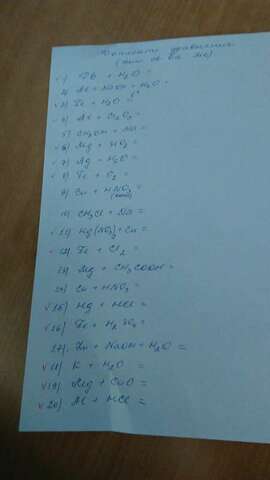 Дописать уравнения
1) Pb + H2O =
2) Al + NaOH + H2O =
3) Fe + H2O =
4) Al + Cr2O3 =
5) CH3OH + Na =
6) Mg + O2 =
7) Ag + H2O =
8) Fe + O2 =
9) Cu + HNO3 =
10) CH3Cl + Na =
11) Hg(NO3)2 + Cu =
12) Fe + Cl2 =
13) Mg + CH3COOH =
14) Cu + HNO3 =
15) Hg + HCl =
16) Fe + H2SO4 =
17) Zn + NaOH + H2O =
18) K + H2O =
19) Mg + CuO =
20) Al + HCl =